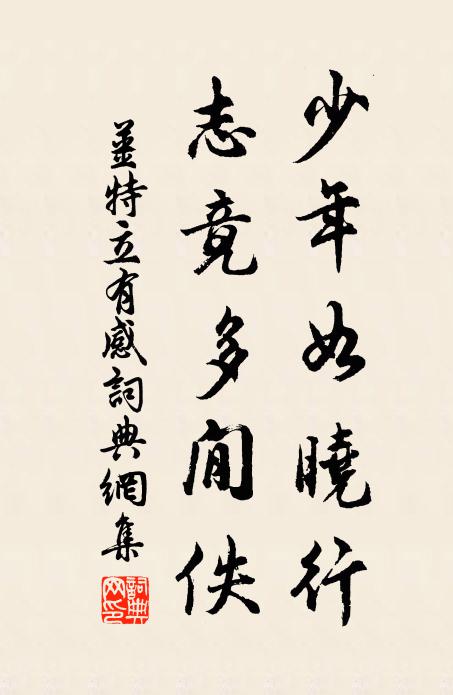 少年如曉行
志竟多閒佚
薑特立有感詞典網集
詞典网印